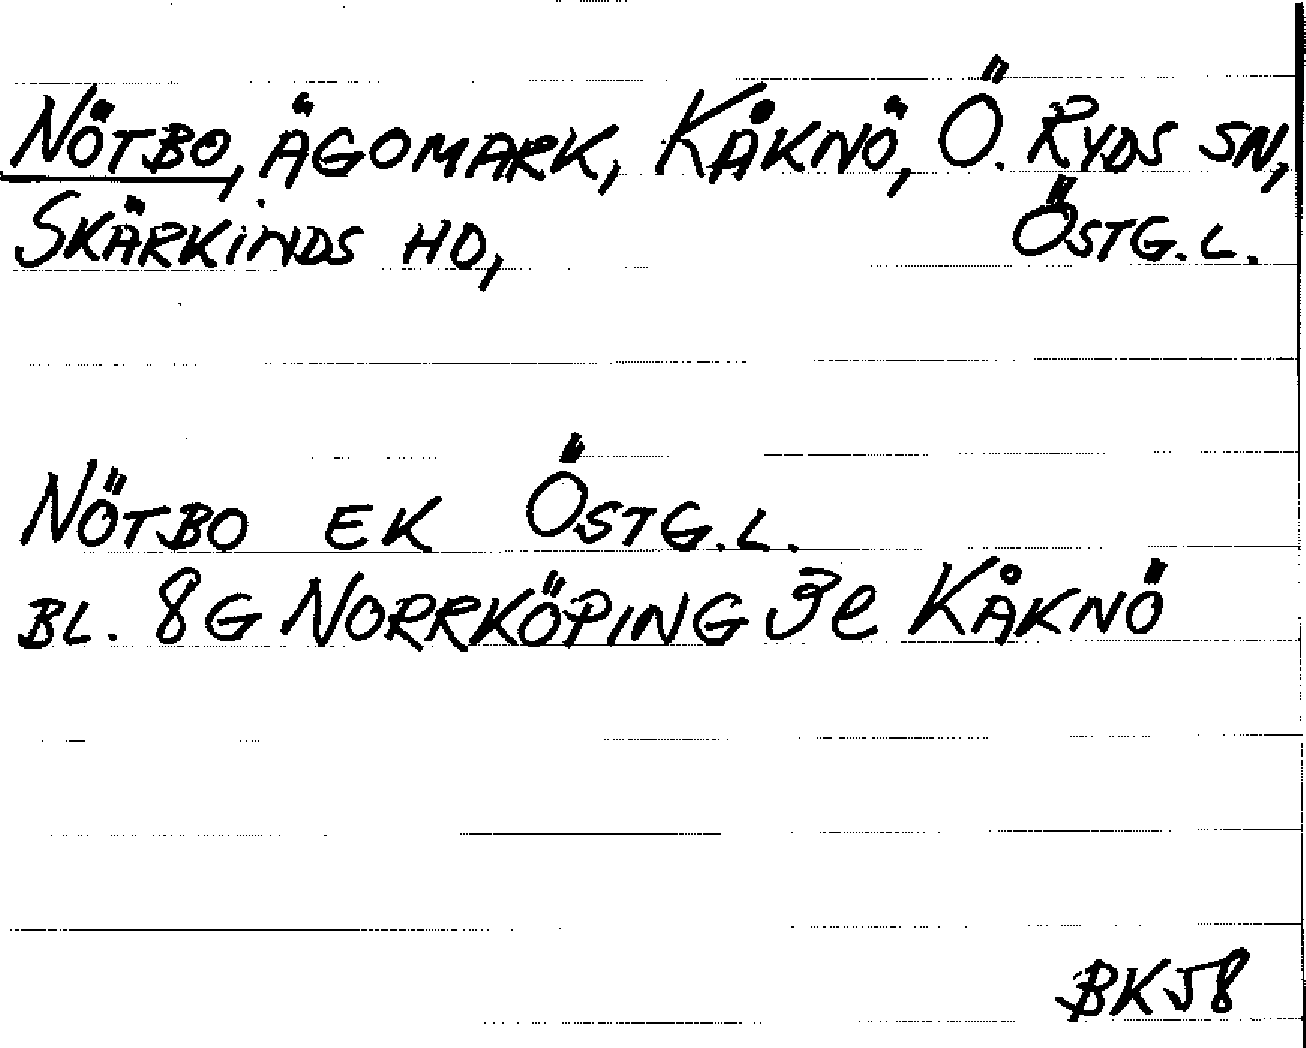 NÖTBO, ÄGOMARK, KÅKNÖ, Ö. RYDS SN,
SKÄRKINDS HD, ÖSTG.L.
NÖTBO EK ÖSTG.L.
BL. 8G NORRKÖPING 3e KÅKNÖ
BK58